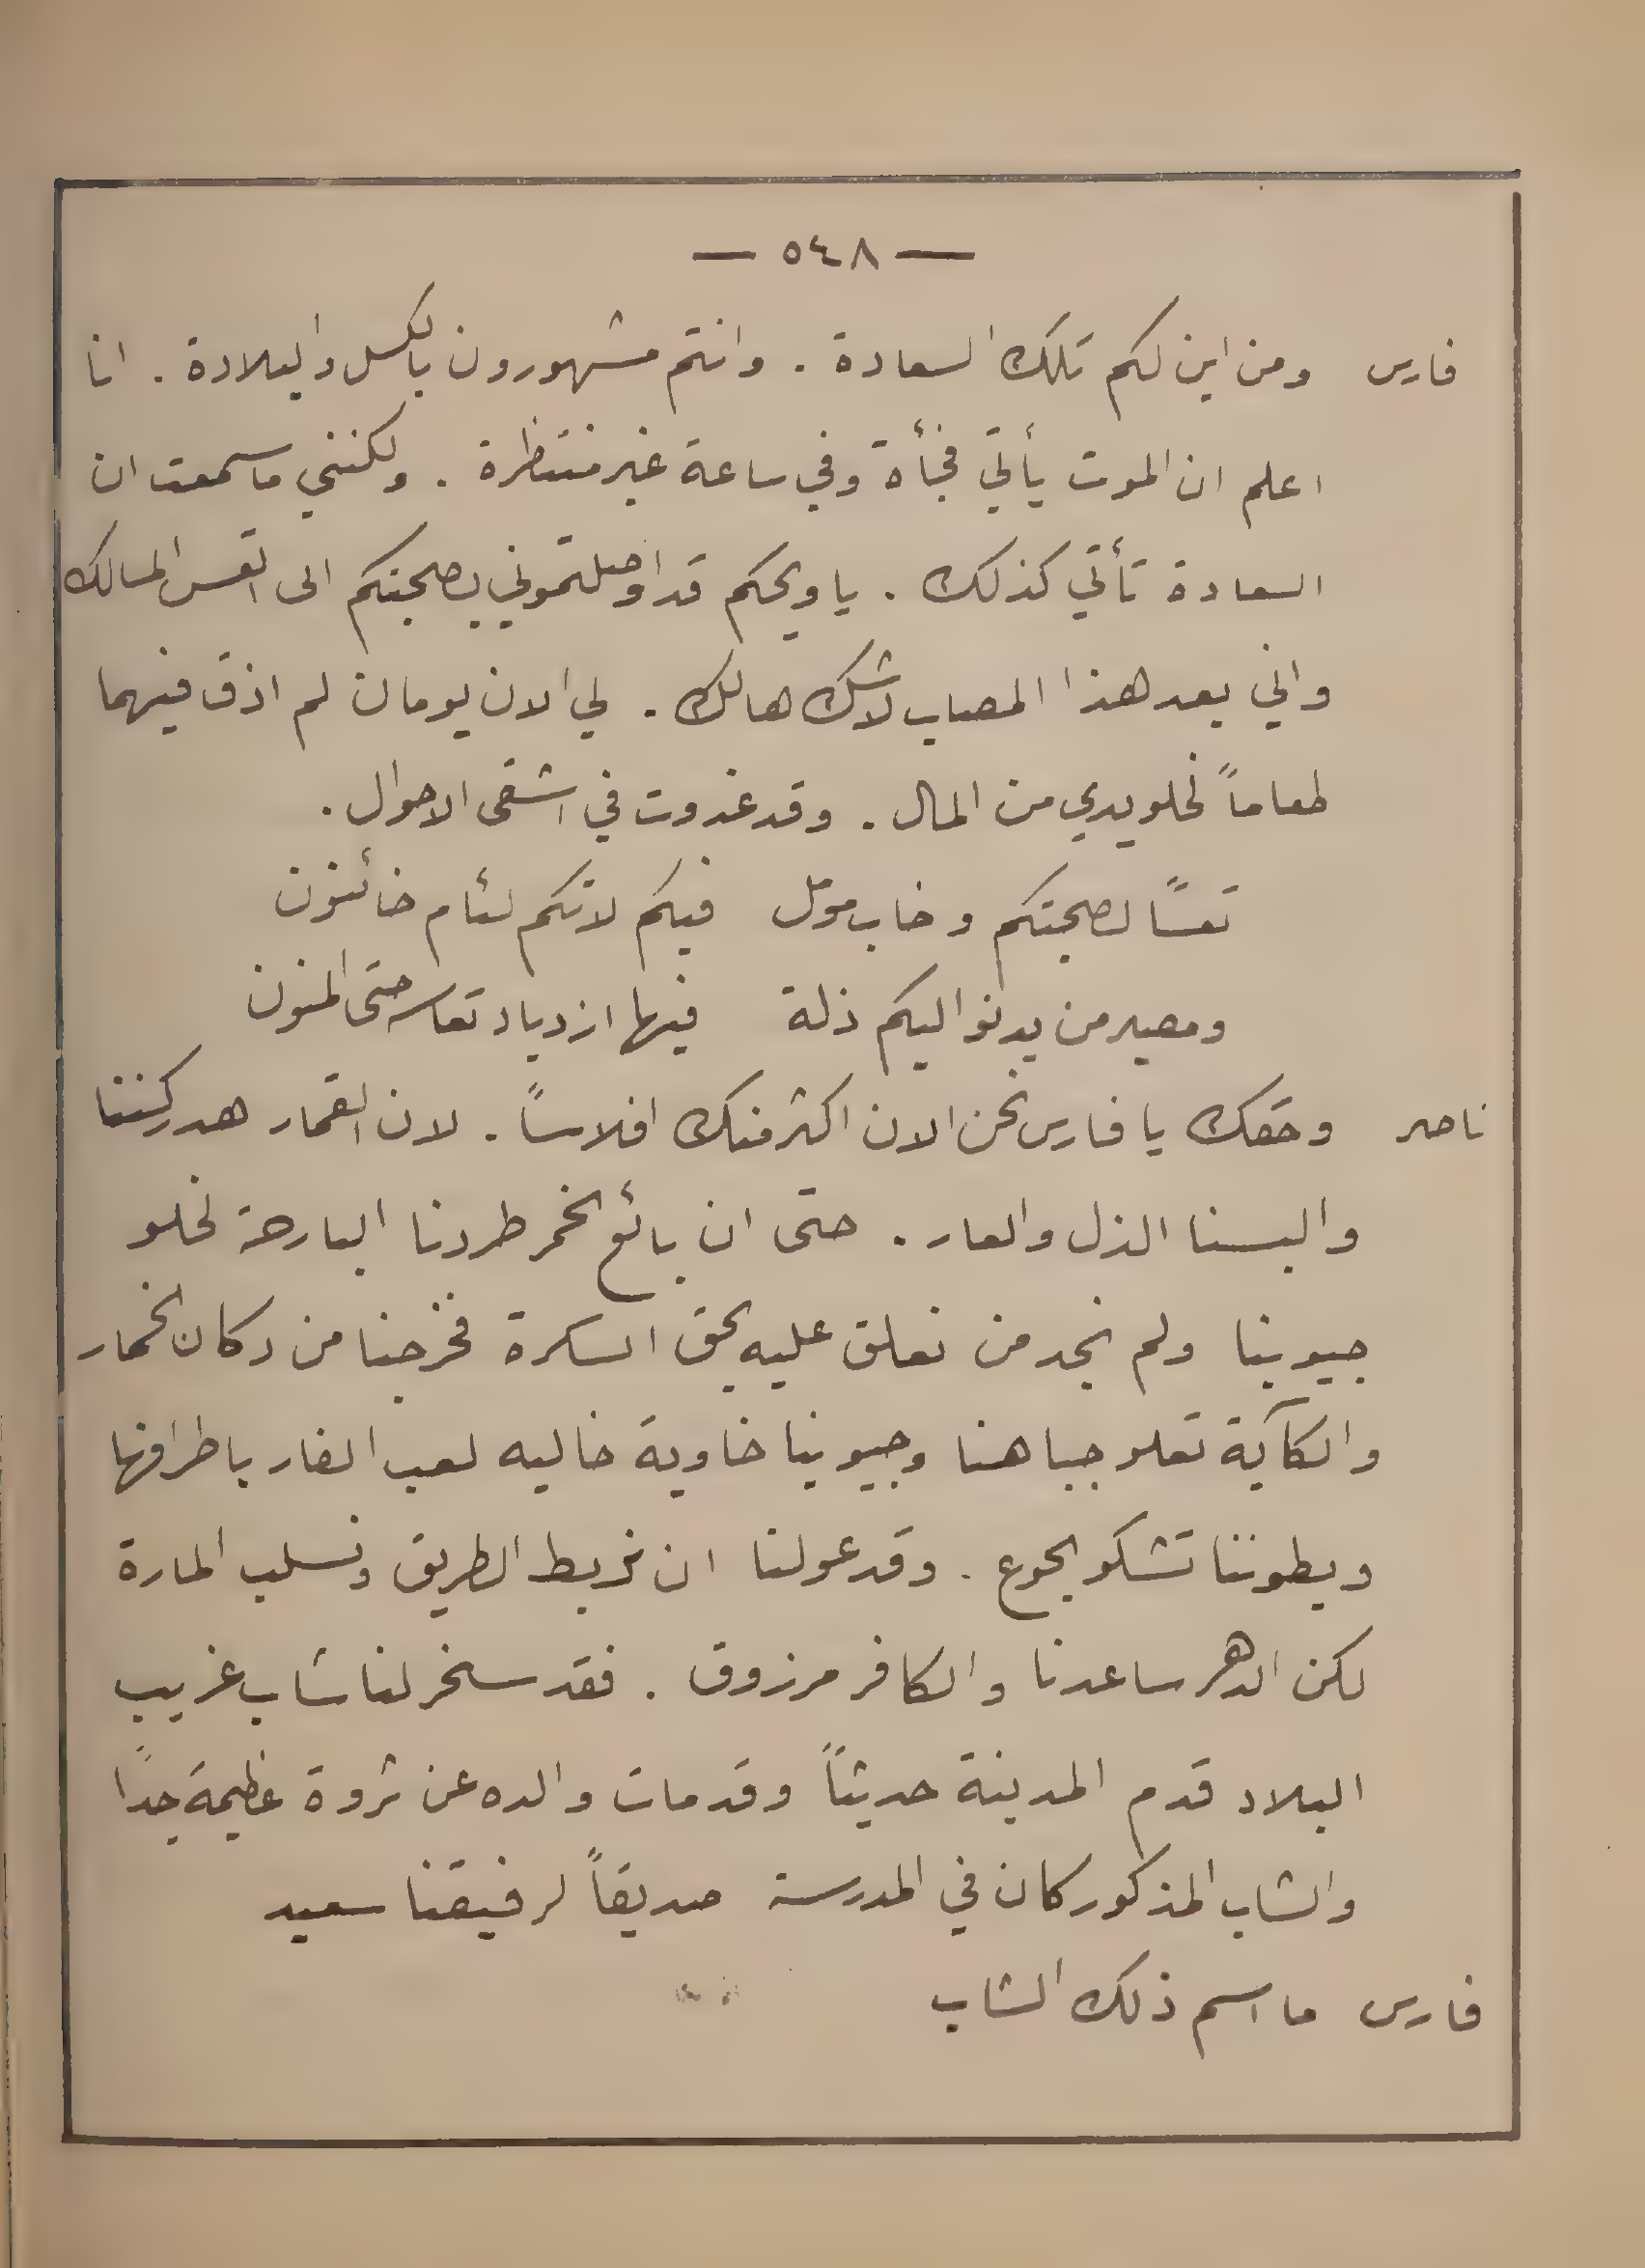 — ٥٤٨ —
فارس ومن اين لكم تلك السعادة . وانتم مشهورون بالكسل والبلادة . انا
اعلم ان الموت يأتي فجأة وفي ساعة غير منتظرة . ولكنني ما سمعت ان
السعادة تأتي كذلك . يا ويحكم قد اوصلتموني بصحبتكم الى اتعس المسالك
واني بعد هذا المصاب لا شك هالك . لي الان يومان لم اذق فيهما
طعاماً لخلو يدي من المال . وقد غدوت في اشقى الاحوال .
تعسًا لصحبتكم وخاب مومل فيكم لانكم لئام خائنون
ومصير من يدنو اليكم ذلة فيها ازدياد تعاسه حتى المنون
ناصر وحقك يا فارس نحن الان اكثر منك افلاسًا . لان القمار هد ركننا
والبسنا الذل والعار . حتى ان بائع الخمر طردنا البارحة لخلو
جيوبنا ولم نجد من نعلق عليه بحق السكرة فخرجنا من دكان الخمار
والكآبة تعلو جباهنا وجيوبنا خاوية خاليه لعب الفار باطرافها
وبطوننا تشكو الجوع . وقد عولنا ان نربط الطريق ونسلب المارة
لكن الدهر ساعدنا والكافر مرزوق . فقد سخر لنا شاب غريب
البلاد قدم المدينة حديثاً وقد مات والده عن ثروة عظيمة جداً
والشاب المذكور كان في المدرسة صديقاً لرفيقنا سعيد
فارس ما اسم ذلك الشاب